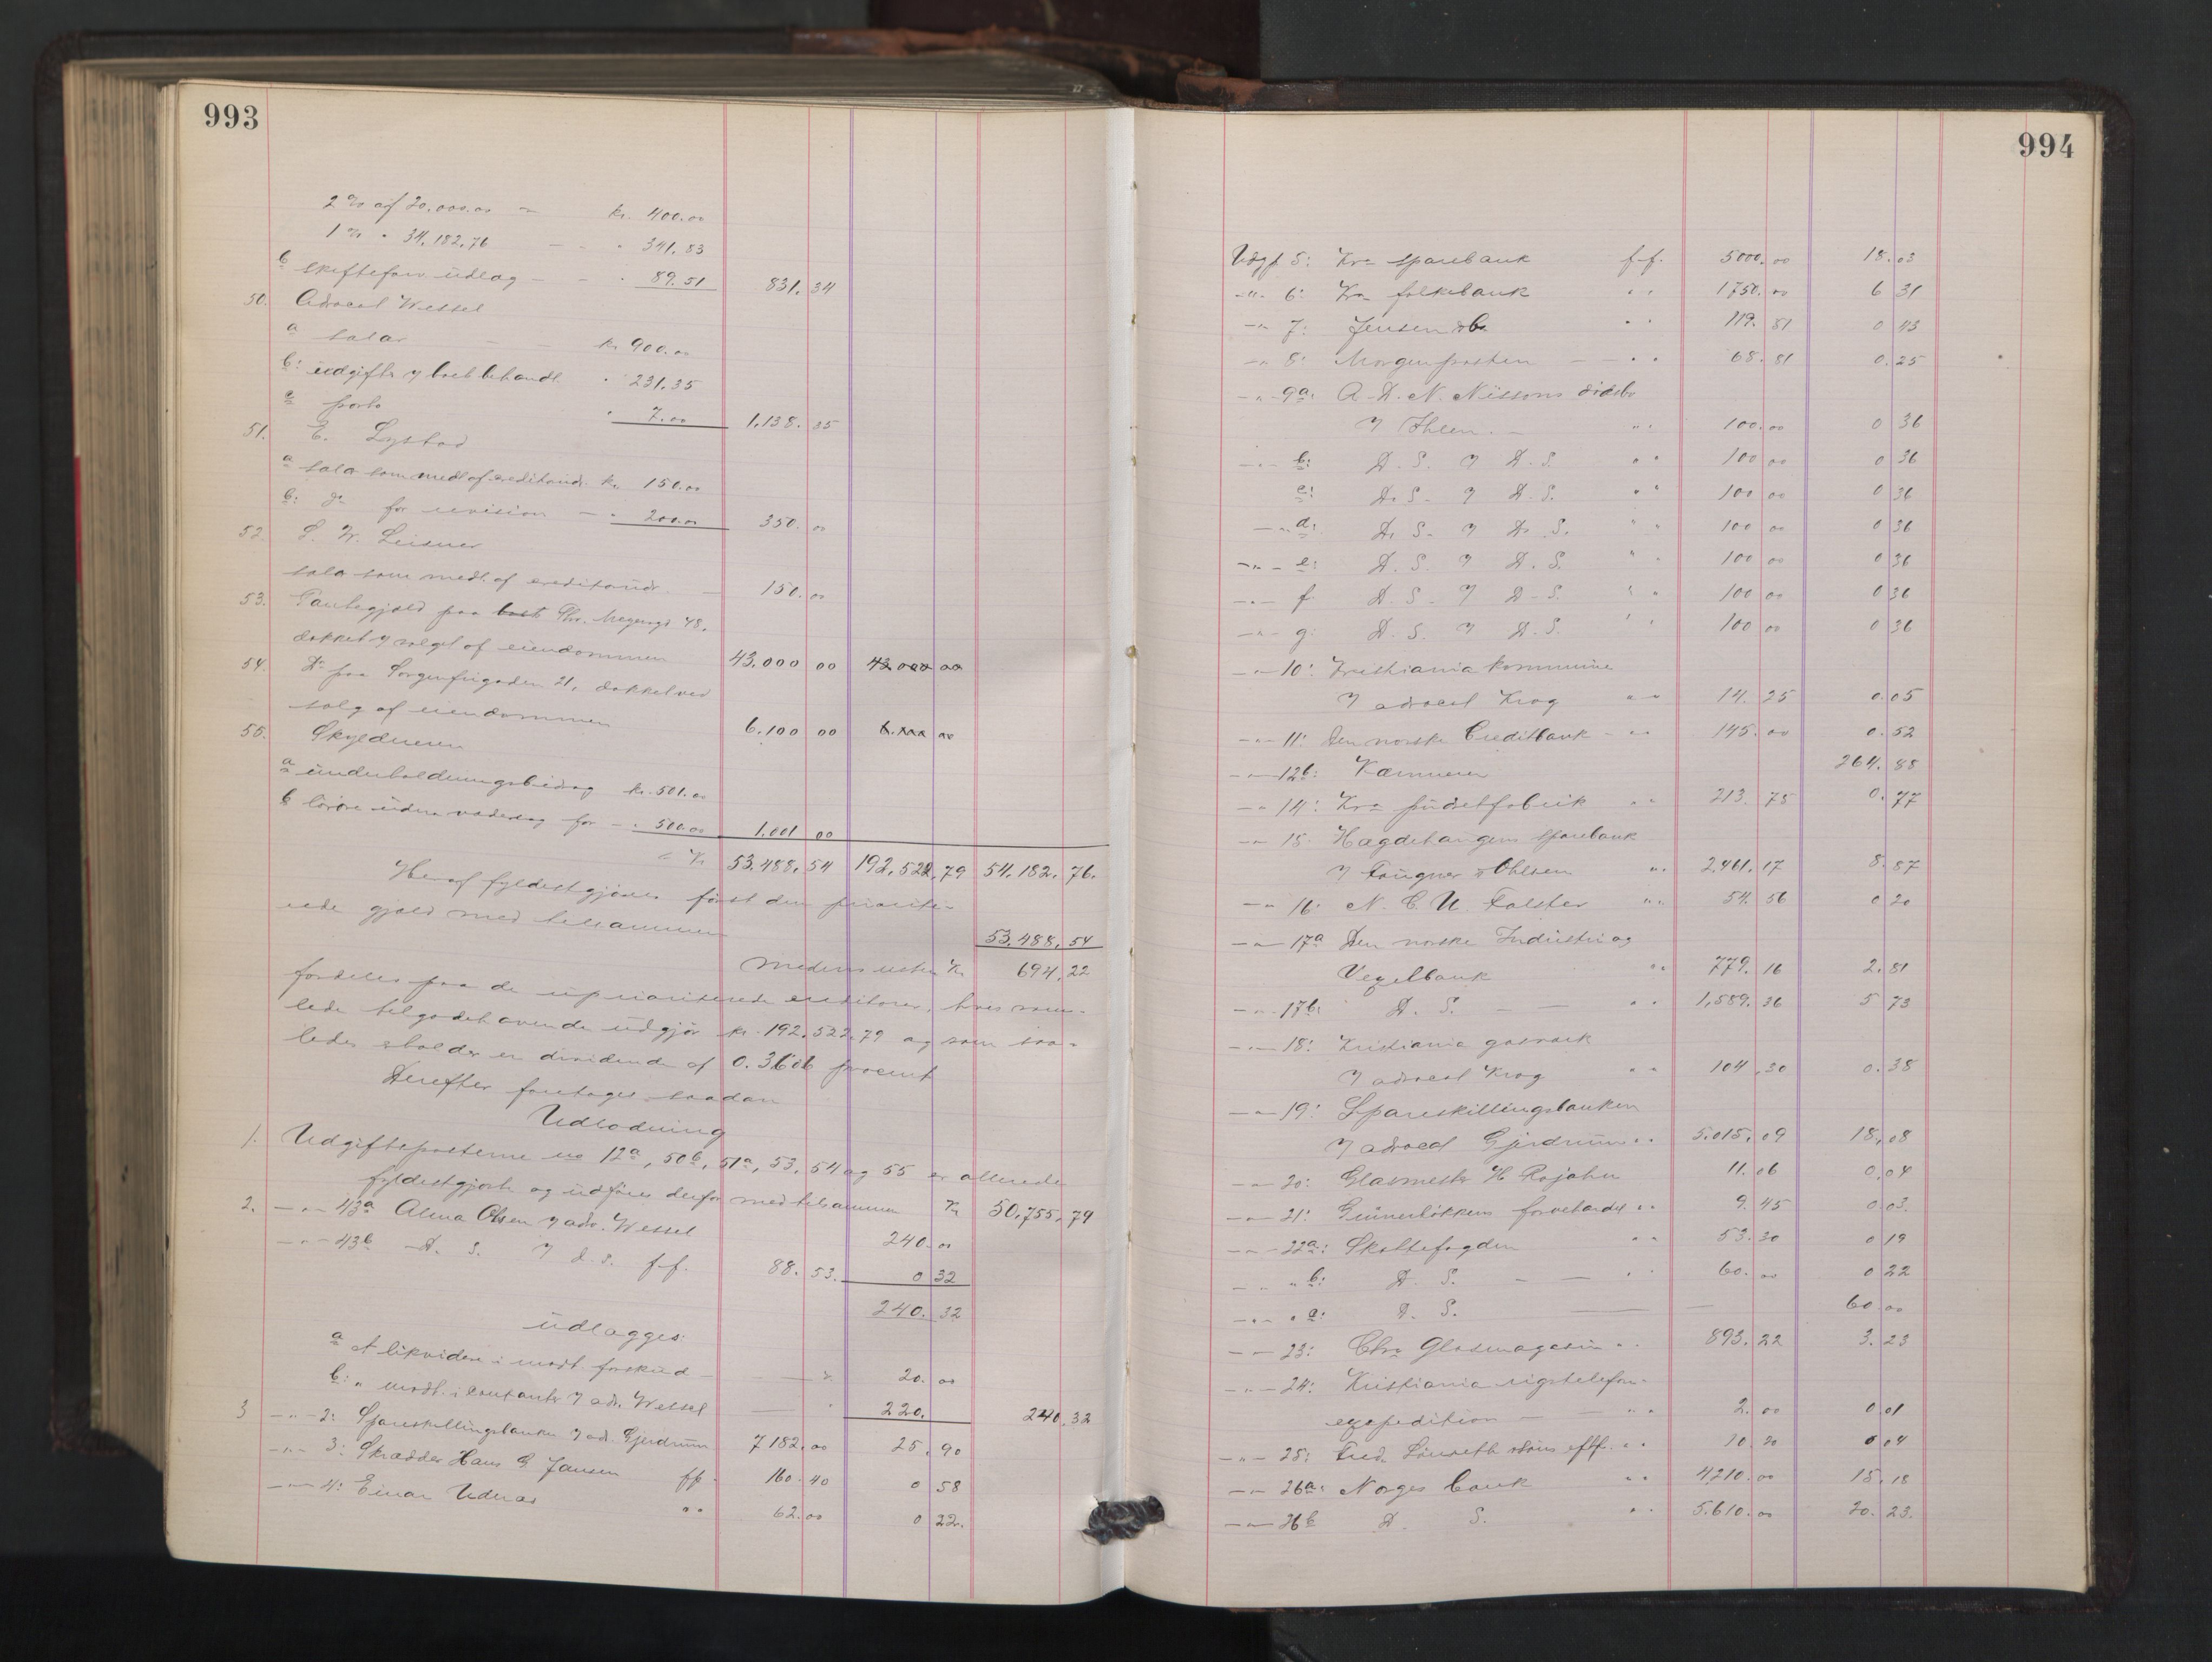 993
2 % af 20.000.00 — kr. 400.00
1 % " 34.182,76 — " 341.83
b skifteforv. udlæg — " 89.51 831.34
50. Advocat Wessel
a salær — — kr. 900.00
b: udgifter v bobehandl. " 231.35
c porto " 7.00 1.138.35
51. E. Lystad
a salær som medl af creditorudv. kr. 150.00
b: do for revision — " 200.00 350.00
52. S. W. Leisner
salær som medl. af creditorudv. — 150.00
53. Pantegjæld paa Thv. Meyersgt 48,
dækket v salget af eiendommen 43.000 00 43.000 00
54. Do paa Sorgenfrigaden 21, dækket ved
salg af eiendommen 6.100 00
55. Skyldneren
a underholdningsbidrag kr. 501.00
b løsøre uden vederlag for — " 500.00 1.001 00
Kr 53.488.54 192.522,79 54.182.76.
Heraf fyldestgjøres først den priorite-
rede gjæld med tilsammen
53.488.54
medens resten Kr 694.22
fordeles paa de upriorite​rede creditorer, hvis sam-
lede tilgodehavende udgjør kr. 192.522.79 og som saa-
ledes erholder en dividende af 0.3606 procent
Derefter foretages saadan
Udlodning
1. Udgiftsposterne no 12a, 50b, 51a, 53, 54 og 55 er allerede
fyldestgjort og udføres derfor med tilsammen Kr 50,755,79
2. — " — 43a Alma Olsen v adv. Wessel 240.00
— " — 43b D. S. v d. S. f-f. 88.53. 0 32
240.32
udlægges:
a At likvidere i modt. forskud — 20.00
b: " modt. i contanter v adv. Wessel — 220. 240.32
3 — " — 2: Spareskillingsbanken v adv. Gjerdrum 7182.00 25.90
— " — 3: Skrædder Hans G Jansen ff. 160.40 0 58
— " — 4: Einar Udnæs " " 62.00 0 22.
994
Udgf 5: Kra sparebank f-f. 5000.00 18.03
— " — 6: Kra folkebank " " 1750.00 6 31
— " 7: Jensen & Co " " 119.81 0 43
— " 8: Morgenposten — — " " 68.81 0.25
— " — 9a: A. D. N. Nissons dødsbo
v Ihlen. — " " 100.00 0 36
— " — b: D. S. v D. S. " " 100 00 0 36
c: D. S. v D. S. " " 100 00 0 36
— " — d: D. S. v D. S. " " 100 00 0 36
— " — e: D. S. v D. S. " " 100 00 0 36
— " — f D. S. v D. S. " " 100 00 0 36
— " — g: D. S. v D. S. " " 100 00 0 36
— " — 10: Kristiania kommune
v advocat Krog " " 14.25 0.05
— " — 11: Den norske Creditbank — " " 145.00 0.52
— " — 12b: Kæmneren 264.88
— " 14: Kra pudretfabrik " " 213.75 0.77
— " 15. Hægdehaugens sparebank
v Fougner & Ohlsen " " 2.461.17 8.87
— " 16: N. C. U. Falster " " 54.56 0 20
— " 17a Den norske Industri og
Vexelbank " " 779.16 2.81
— " — 17b: D. S. — — " " 1,589.36 5 73
— " — 18: Kristiania gasværk
v advocat Krog " " 104.30 0.38
— " — 19: Spareskillingsbanken
v advocat Gjerdrum " " 5.015.09 18.08
— " 20: Glasmester H Rojahn 11.06 0.04
— " — 21: Grünerløkkens " " 9.45 0.03.
— " — 22a: Skattefogden " " 53.30 0 19
— " " b: D. S. — — " " 60.00 0 22
— " — " c: D. S. — — 60.00
— " — 23: Chra Glasmagasin " " 893.22 3.23
— " — 24: Kristiania rigstelefon-
expedition — — " " 2.00 0.01
— " — 25: Fred. & Søns eftf. " " 10.20 0 04
— " — 26a: Norges bank " " 4210.00 15.18
— " — 26b D. S. " 5.610.00 20.23.